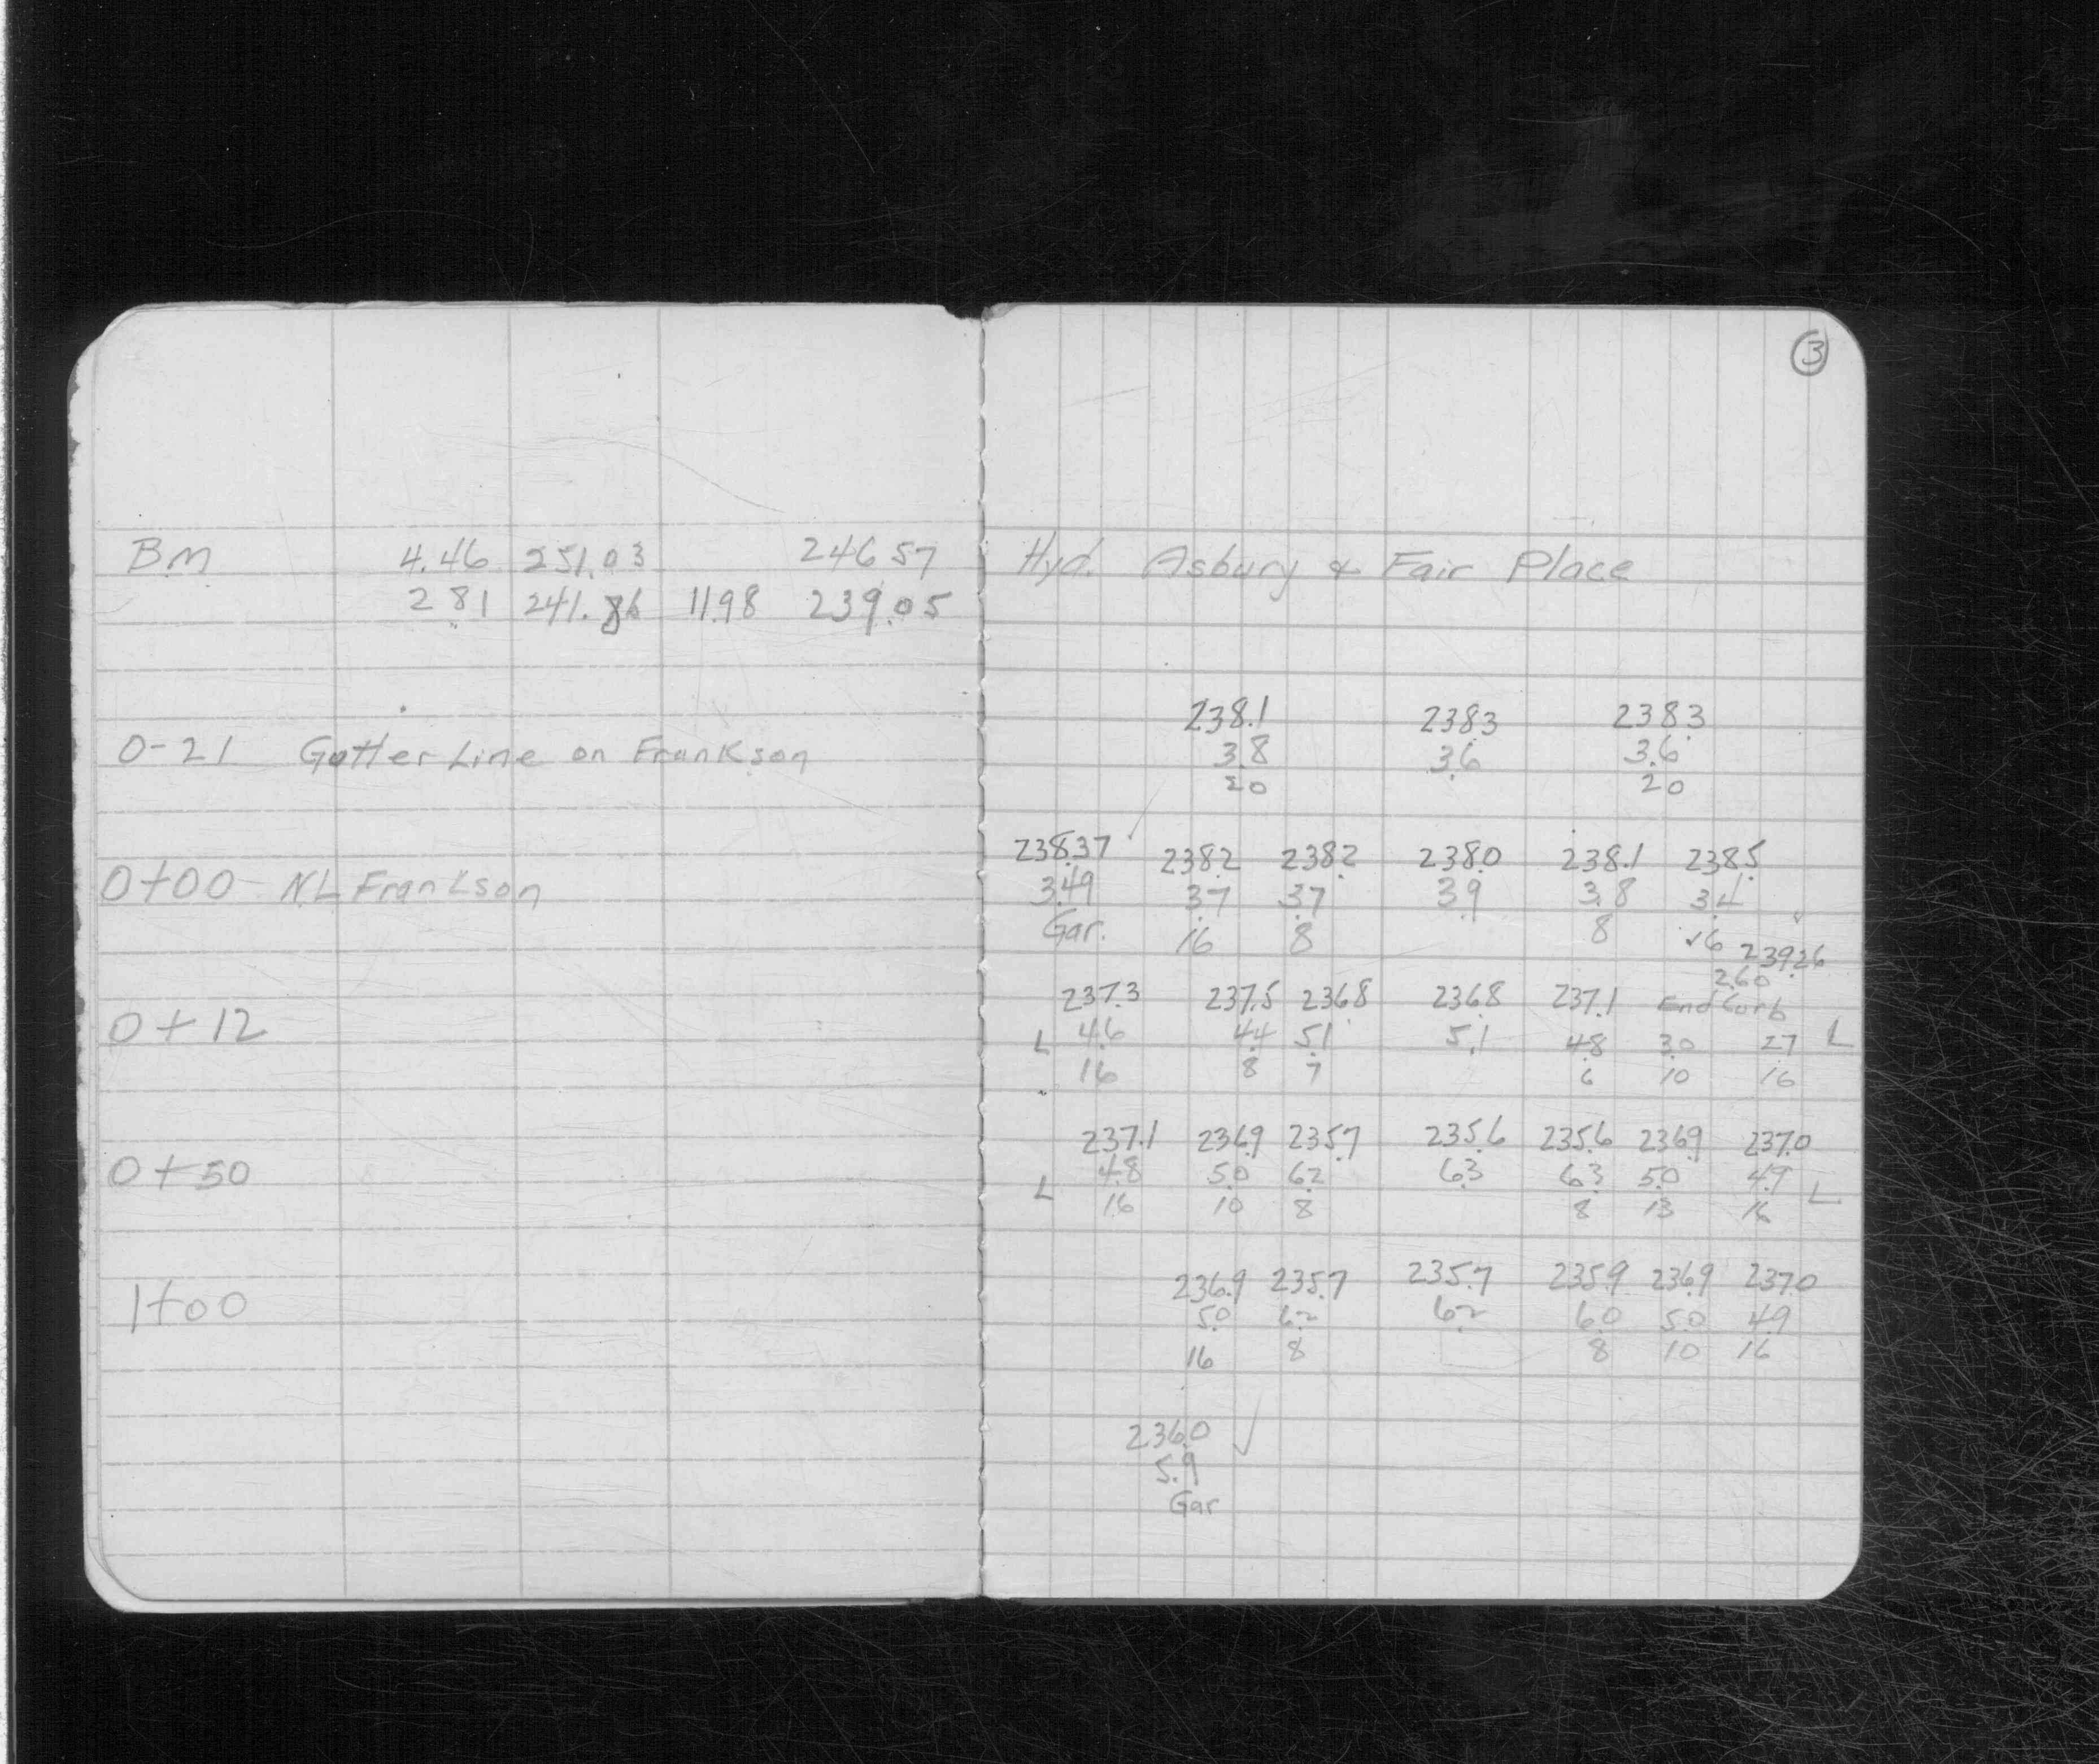 3
BM 4.46 251.03 246.57 Hyd. Asbury & Fair Place
2.81 241.86 11.98 239.05
238.1 238.3 238.3
0-21 Gutter Line on Frankson 3.8 3.6 3.6
20 20
238.37 238.2 238.2 238.0 238.1 238.5
0+00 NL Frankson 3.49 3.7 3.7 3.9 3.8 3.4
Gar. 16 8 8 16 239.26
2.60
237.3 237.5 236.8 236.8 237.1 End Curb
0+12 L 4.6 4.4 5.1 5.1 4.8 3.0 2.7 L
16 8 7 6 10 16
237.1 236.9 235.7 235.6 235.6 236.9 237.0
0+50 L 4.8 5.0 6.2 6.3 6.3 5.0 4.9 L
16 10 8 8 13 16
236.9 235.7 235.7 235.9 236.9 237.0
1+00 5.0 6.2 6.2 6.0 5.0 4.9
16 8 8 10 16
236.0
5.9
Gar